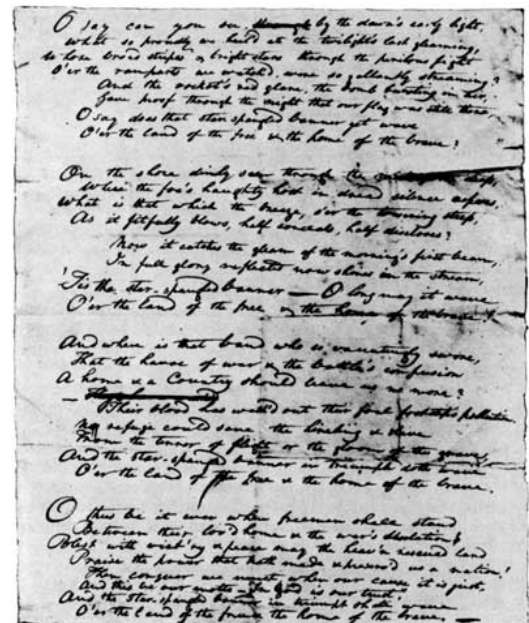 O say can you see, through by the dawn's early light,
What so proudly we hail'd at the twilight's last gleaming,
Whose broad stripes & bright stars through the perilous fight
O'er the ramparts we watch'd, were so gallantly streaming?
And the rocket's red glare, the bomb bursting in air,
Gave proof through the night that our flag was still there,
O say does that star-spangled banner yet wave
O'er the land of the free & the home of the brave?
On the shore dimly seen through the deep,
Where the foe's haughty host in dread silence reposes,
What is that which the breeze, o'er the towering steep,
As it fitfully blows, half conceals, half discloses?
Now it catches the gleam of the morning's first beam,
In full glory reflected now shines in the stream,
'Tis the star-spangled banner — O long may it wave
O'er the land of the free & the home of the brave!
And where is that band who so vauntingly swore,
That the havoc of war & the battle's confusion
A home & a Country should leave us no more?
—
Their blood has wash'd out their foul footstep's pollution.
No refuge could save the hireling & slave
From the terror of flight or the gloom of the grave,
And the star-spangled banner in triumph doth wave
O'er the land of the free & the home of the brave.
O thus be it ever when freemen shall stand
Between their lov'd home & the war's desolation!
Blest with vict'ry & peace may the heav'n rescued land
Praise the power that hath made & preserv'd us a nation!
Then conquer we must, when our cause it is just,
And this be our motto - "In God is our trust,"
And the star-spangled banner in triumph shall wave
O'er the land of the free & the home of the brave. —